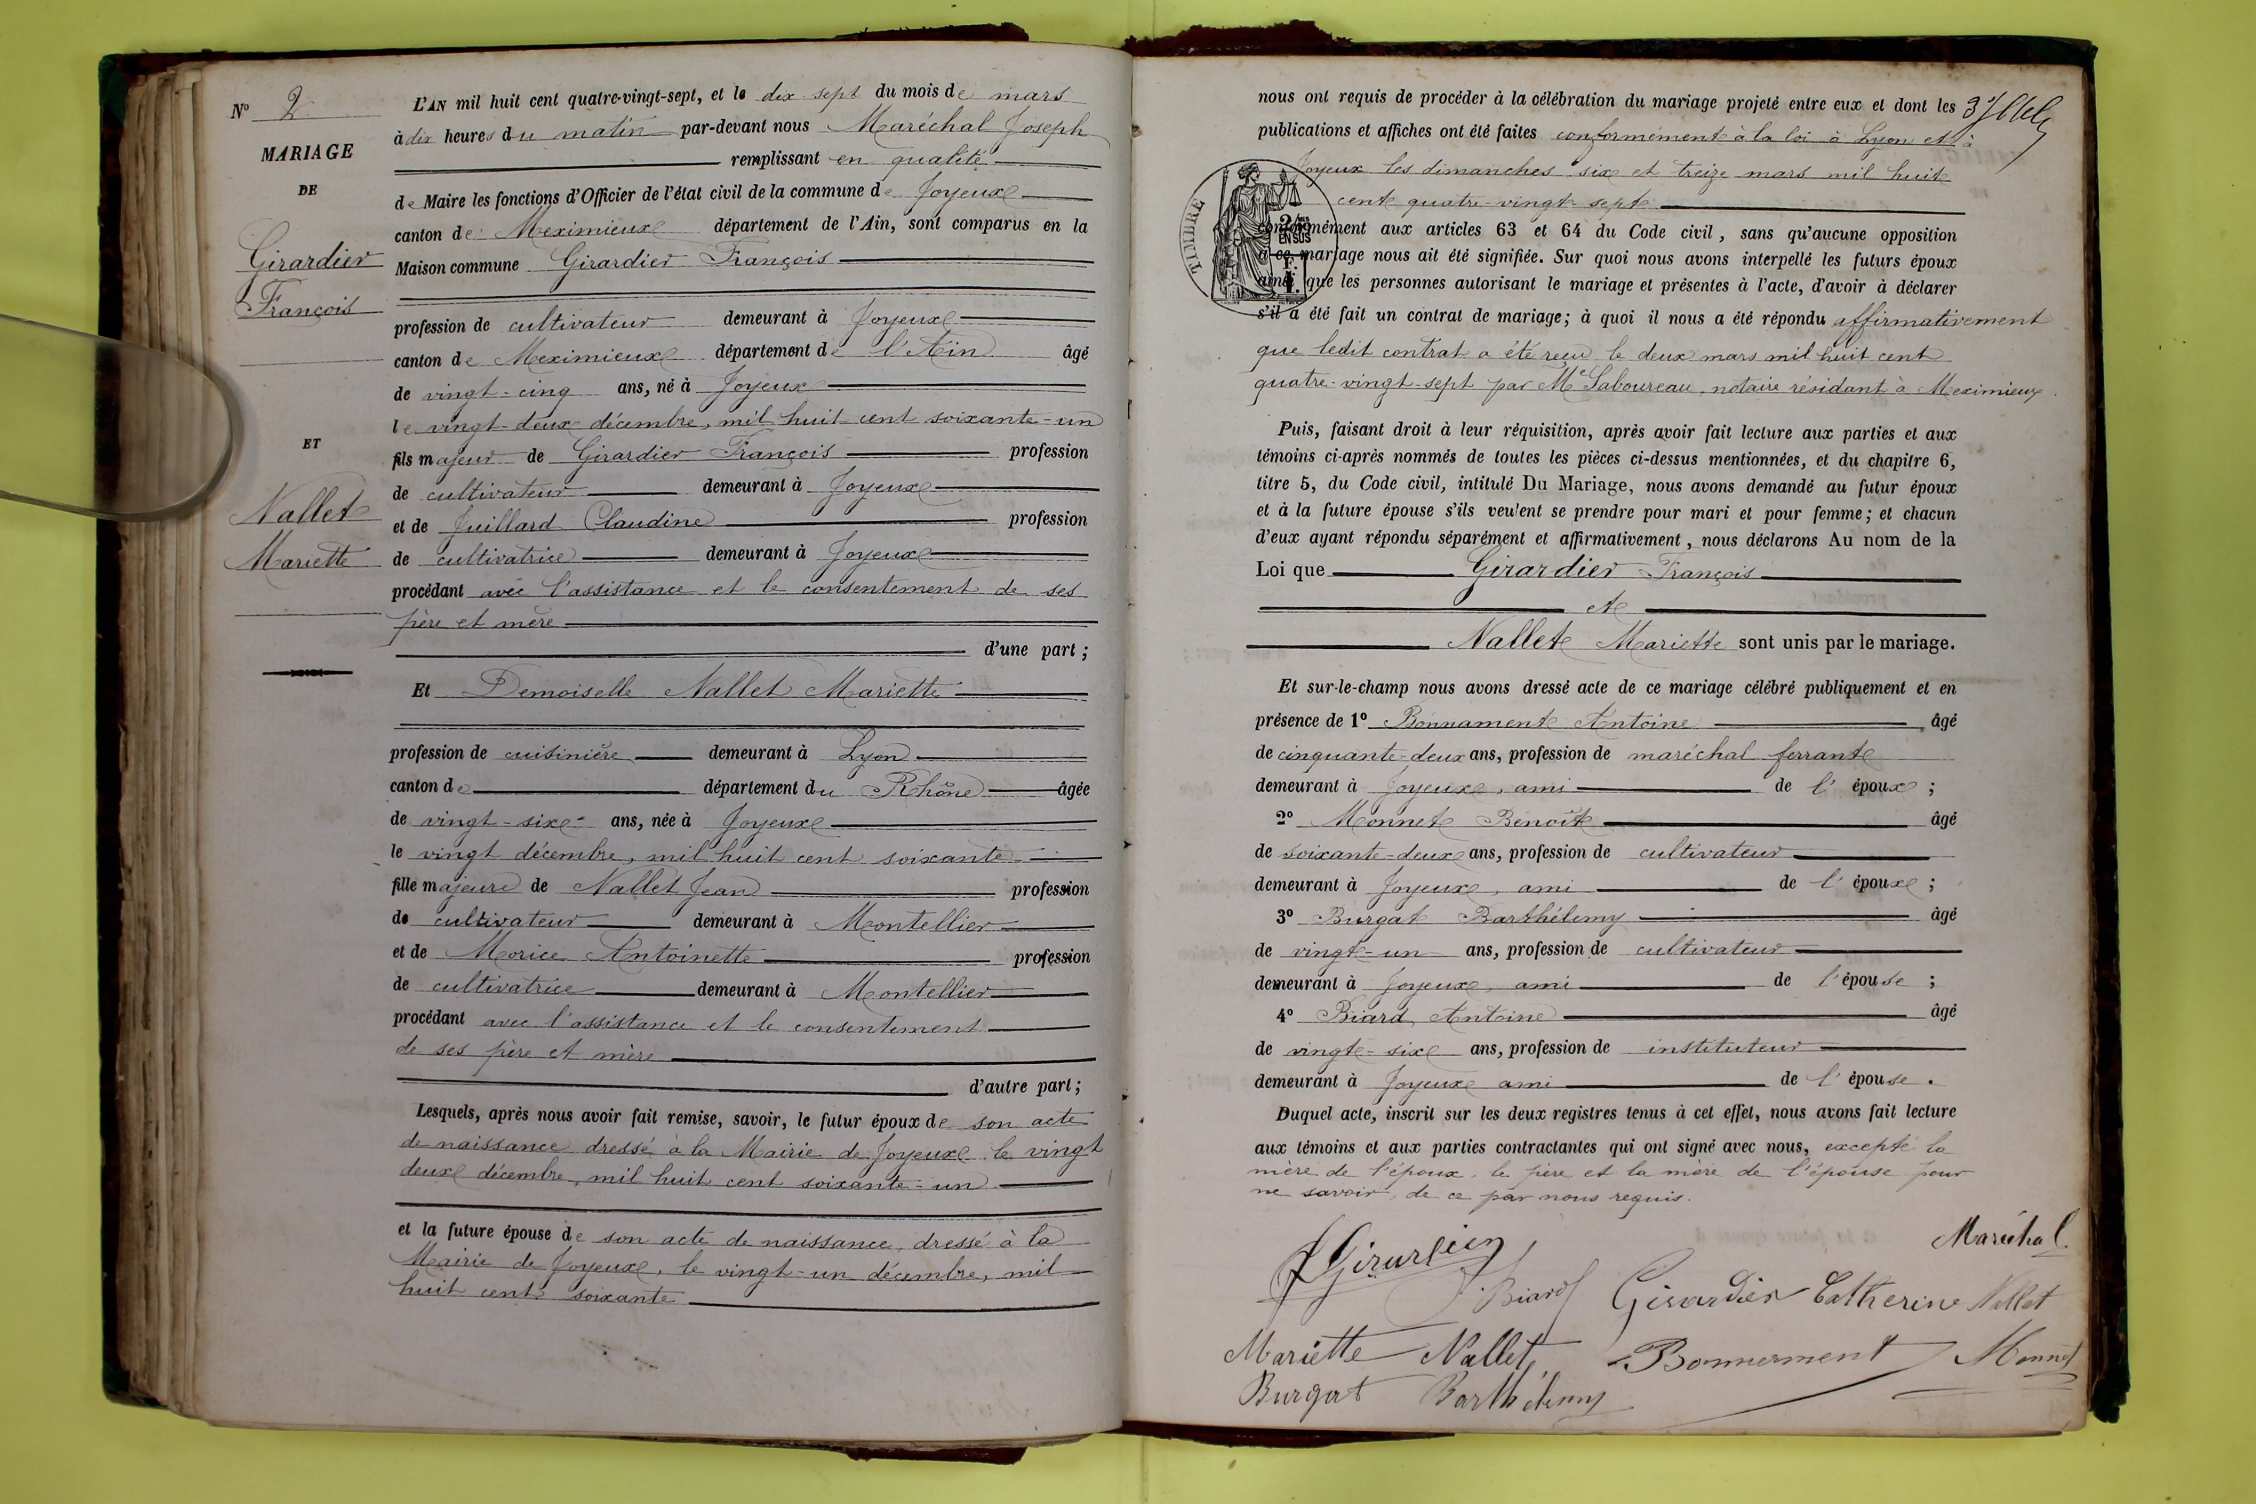 N° 2
MARIAGE
DE
Girardier
François
ET
Nallet
Mariette
L'AN mil huit cent quatre-vingt-sept, et le dix sept du mois de mars
à dix heures du matin par-devant nous Maréchal Joseph
remplissant en qualité
de Maire les fonctions d'Officier de l'état civil de la commune de Joyeux
canton de Meximieux département de l'Ain, sont comparus en la
Maison commune Girardier François
profession de cultivateur demeurant à Joyeux
canton de Meximieux département de l'Ain âgé
de vingt-cinq ans, né à Joyeux
le vingt-deux décembre, mil huit cent soixante-un
fils majeur de Girardier François profession
de cultivateur demeurant à Joyeux
et de Juillard Claudine profession
de cultivatrice demeurant à Joyeux
procédant avec l'assistance et le consentement de ses
père et mère
d'une part ;
Et Demoiselle Nallet Mariette
profession de cuisinière demeurant à Lyon
canton de département du Rhône âgée
de vingt-six ans, née à Joyeux
le vingt décembre, mil huit cent soixante
fille majeure de Nallet Jean profession
de cultivateur demeurant à Montellier
et de Morice Antoinette profession
de cultivatrice demeurant à Montellier
procédant avec l'assistance et le consentement
de ses père et mère
d'autre part ;
Lesquels, après nous avoir fait remise, savoir, le futur époux de son acte
de naissance dressé à la Mairie de Joyeux le vingt
deux décembre, mil huit cent soixante-un
et la future épouse de son acte de naissance, dressé à la
Mairie de Joyeux, le vingt-un décembre, mil
huit cent soixante
nous ont requis de procéder à la célébration du mariage projeté entre eux et dont les
publications et affiches ont été faites conformément à la loi à Lyon et à
Joyeux les dimanches six et treize mars mil huit
cent quatre-vingt-sept
TIMBRE
2/10
EN SUS
F.
1.
conformément aux articles 63 et 64 du Code civil, sans qu'aucune opposition
à ce mariage nous ait été signifiée. Sur quoi nous avons interpellé les futurs époux
ainsi que les personnes autorisant le mariage et présentes à l'acte, d'avoir à déclarer
s'il a été fait un contrat de mariage ; à quoi il nous a été répondu affirmativement
que ledit contrat a été reçu le deux mars mil huit cent
quatre-vingt-sept par Me Laboureau, notaire résidant à Meximieux.
Puis, faisant droit à leur réquisition, après avoir fait lecture aux parties et aux
témoins ci-après nommés de toutes les pièces ci-dessus mentionnées, et du chapitre 6,
titre 5, du Code civil, intitulé Du Mariage, nous avons demandé au futur époux
et à la future épouse s'ils veulent se prendre pour mari et pour femme ; et chacun
d'eux ayant répondu séparément et affirmativement, nous déclarons Au nom de la
Loi que Girardier François
et
Nallet Mariette sont unis par le mariage.
Et sur-le-champ nous avons dressé acte de ce mariage célébré publiquement et en
présence de 1° Bonnament Antoine âgé
de cinquante-deux ans, profession de maréchal ferrant
demeurant à Joyeux, ami de l'époux ;
2° Monnet Benoît âgé
de soixante-deux ans, profession de cultivateur
demeurant à Joyeux, ami de l'époux ;
3° Burgat Barthélemy âgé
de vingt-un ans, profession de cultivateur
demeurant à Joyeux, ami de l'épouse ;
4° Biard Antoine âgé
de vingt-six ans, profession de instituteur
demeurant à Joyeux ami de l'épouse.
Duquel acte, inscrit sur les deux registres tenus à cet effet, nous avons fait lecture
aux témoins et aux parties contractantes qui ont signé avec nous, excepté la
mère de l'époux, le père et la mère de l'épouse pour
ne savoir, de ce par nous requis.
Maréchal
Biard Girardier Catherine Nallet
Mariette Nallet Bonnerment Monnet
Burgat Barthélemy